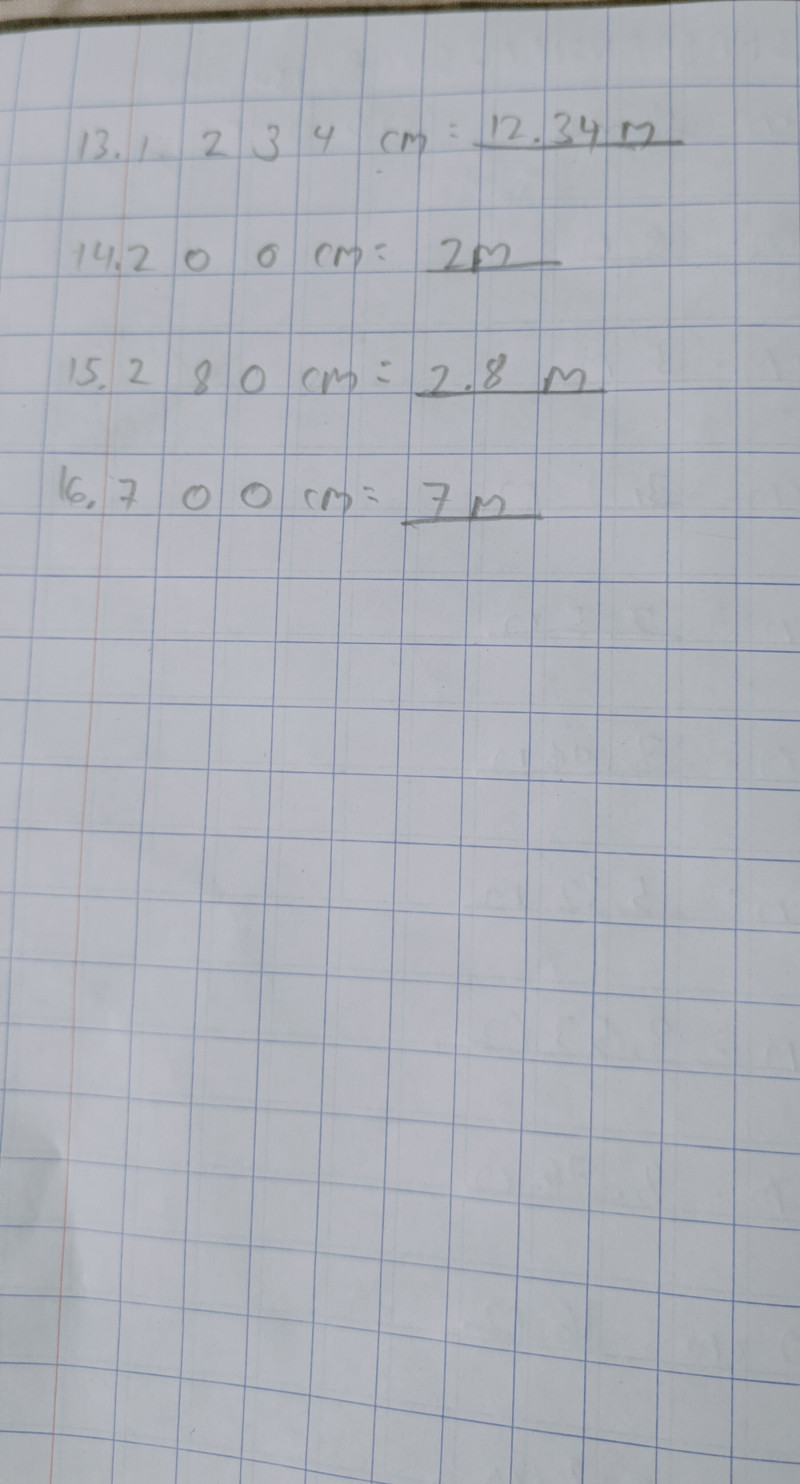 13. 1 2 3 4 cm = 12.34 m
14. 2 0 0 cm = 2m
15. 2 8 0 cm = 2.8 m
16. 7 0 0 cm = 7 m